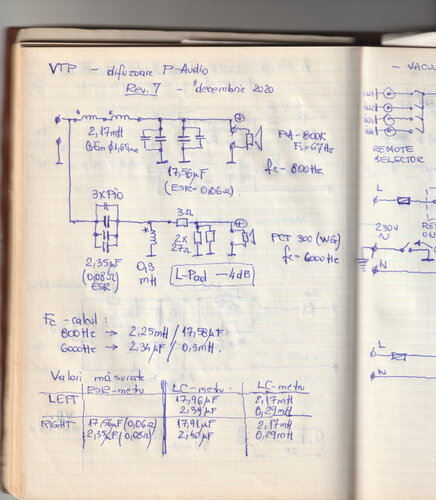 VTP - difuzoare P-Audio
Rev. 7 - decembrie 2020
2,17mH
17,56µF
(ESR-0,06Ω)
Fs=67Hz
fc-800Hz
3xPIO
2,35µF
(0,08Ω)
ESR
0,3
mH
3Ω
2x
27Ω
L-Pad -4dB
PCT 300 (WG)
fc-6000Hz
Fc - calcul:
800Hz → 2,25mH / 17,58µF
6000Hz → 2,34µF / 0,3mH.
Valori măsurate:
ESR-metru LC-metru LC-metru
LEFT 17,96µF 2,17mH
2,39µF 0,29mH
RIGHT 17,56µF (0,06Ω) 17,91µF 2,17mH
2,35µF (0,08Ω) 2,40µF 0,29mH
- VACU
REMOTE
SELECTOR
L
230V
N
L
N